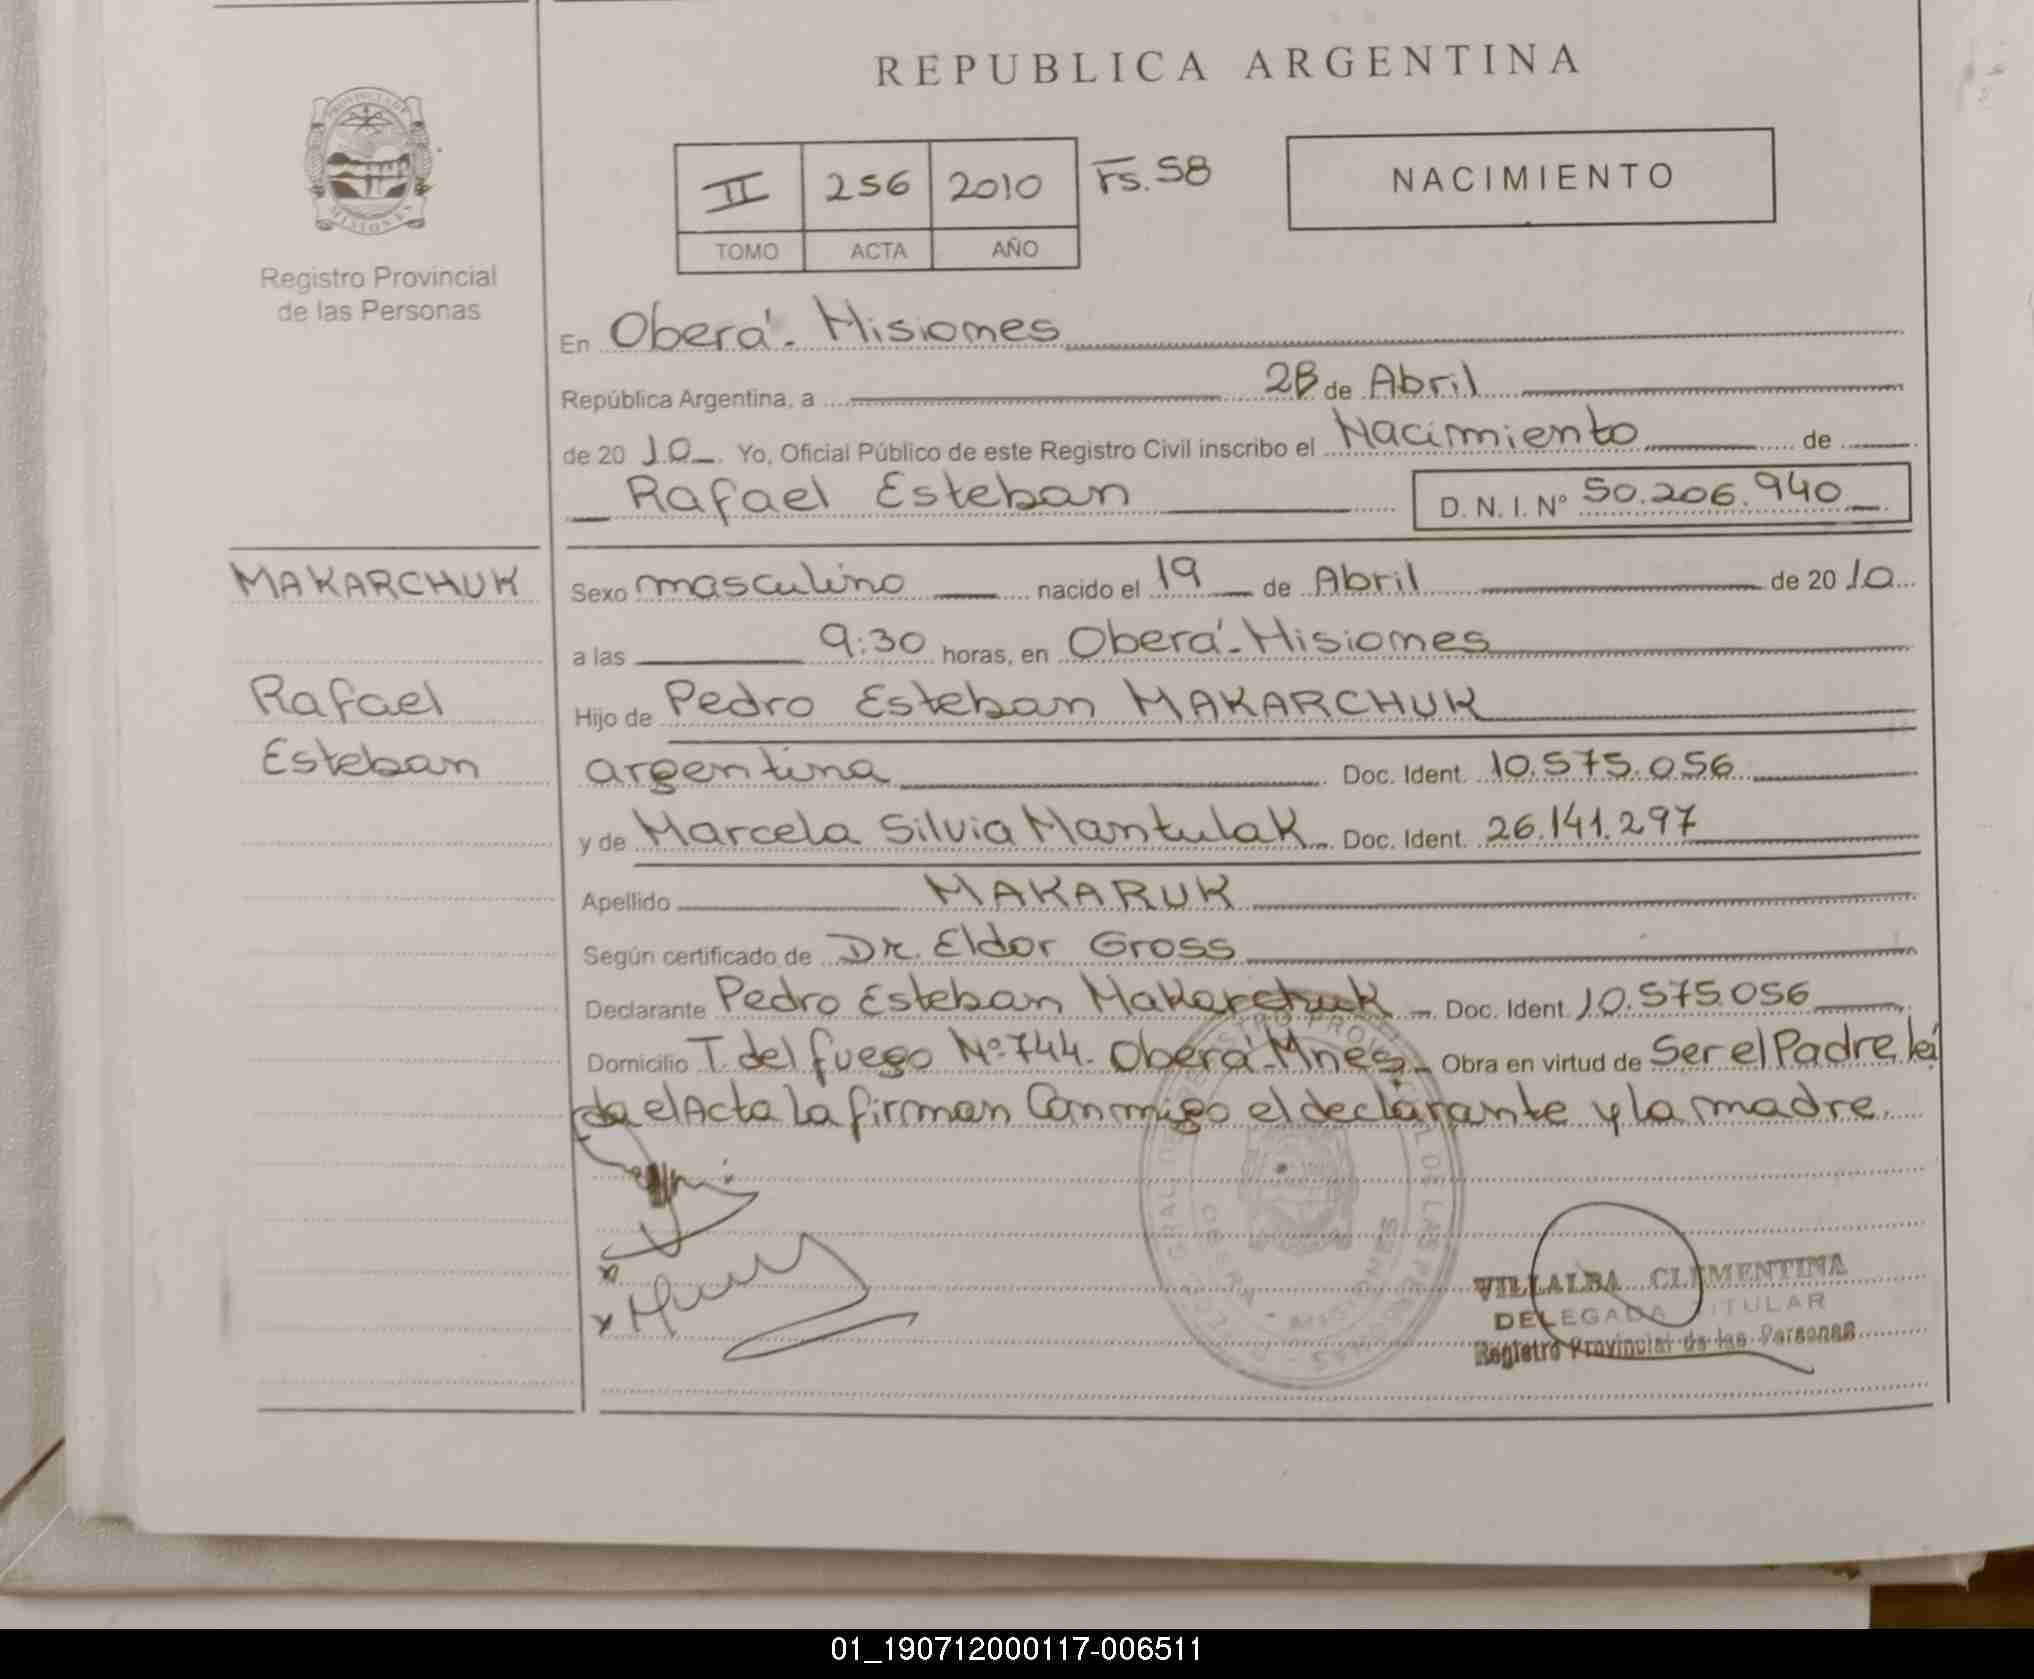 REPUBLICA ARGENTINA
PROVINCIA DE
MISIONES
Registro Provincial
de las Personas
II 256 2010 Fs. 58
TOMO ACTA AÑO
NACIMIENTO
En Oberá - Misiones
República Argentina, a 28 de Abril
de 20 10 Yo, Oficial Público de este Registro Civil inscribo el Nacimiento de
Rafael Esteban D. N. I. Nº 50.206.940
MAKARCHUK
Rafael
Esteban
Sexo masculino nacido el 19 de Abril de 20 10
a las 9:30 horas, en Oberá - Misiones
Hijo de Pedro Esteban MAKARCHUK
argentina Doc. Ident. 10.575.056
y de Marcela Silvia Mantulak Doc. Ident. 26.141.297
Apellido MAKARUK
Según certificado de Dr. Eldor Gross
Declarante Pedro Esteban Makarchuk Doc. Ident. 10.575.056
Domicilio T. del fuego Nº 744. Oberá - Mnes Obra en virtud de Ser el Padre leí
da el Acta la firman Conmigo el declarante y la madre.
VILLALBA CLEMENTINA
DELEGADA TITULAR
Registro Provincial de las Personas
01_190712000117-006511